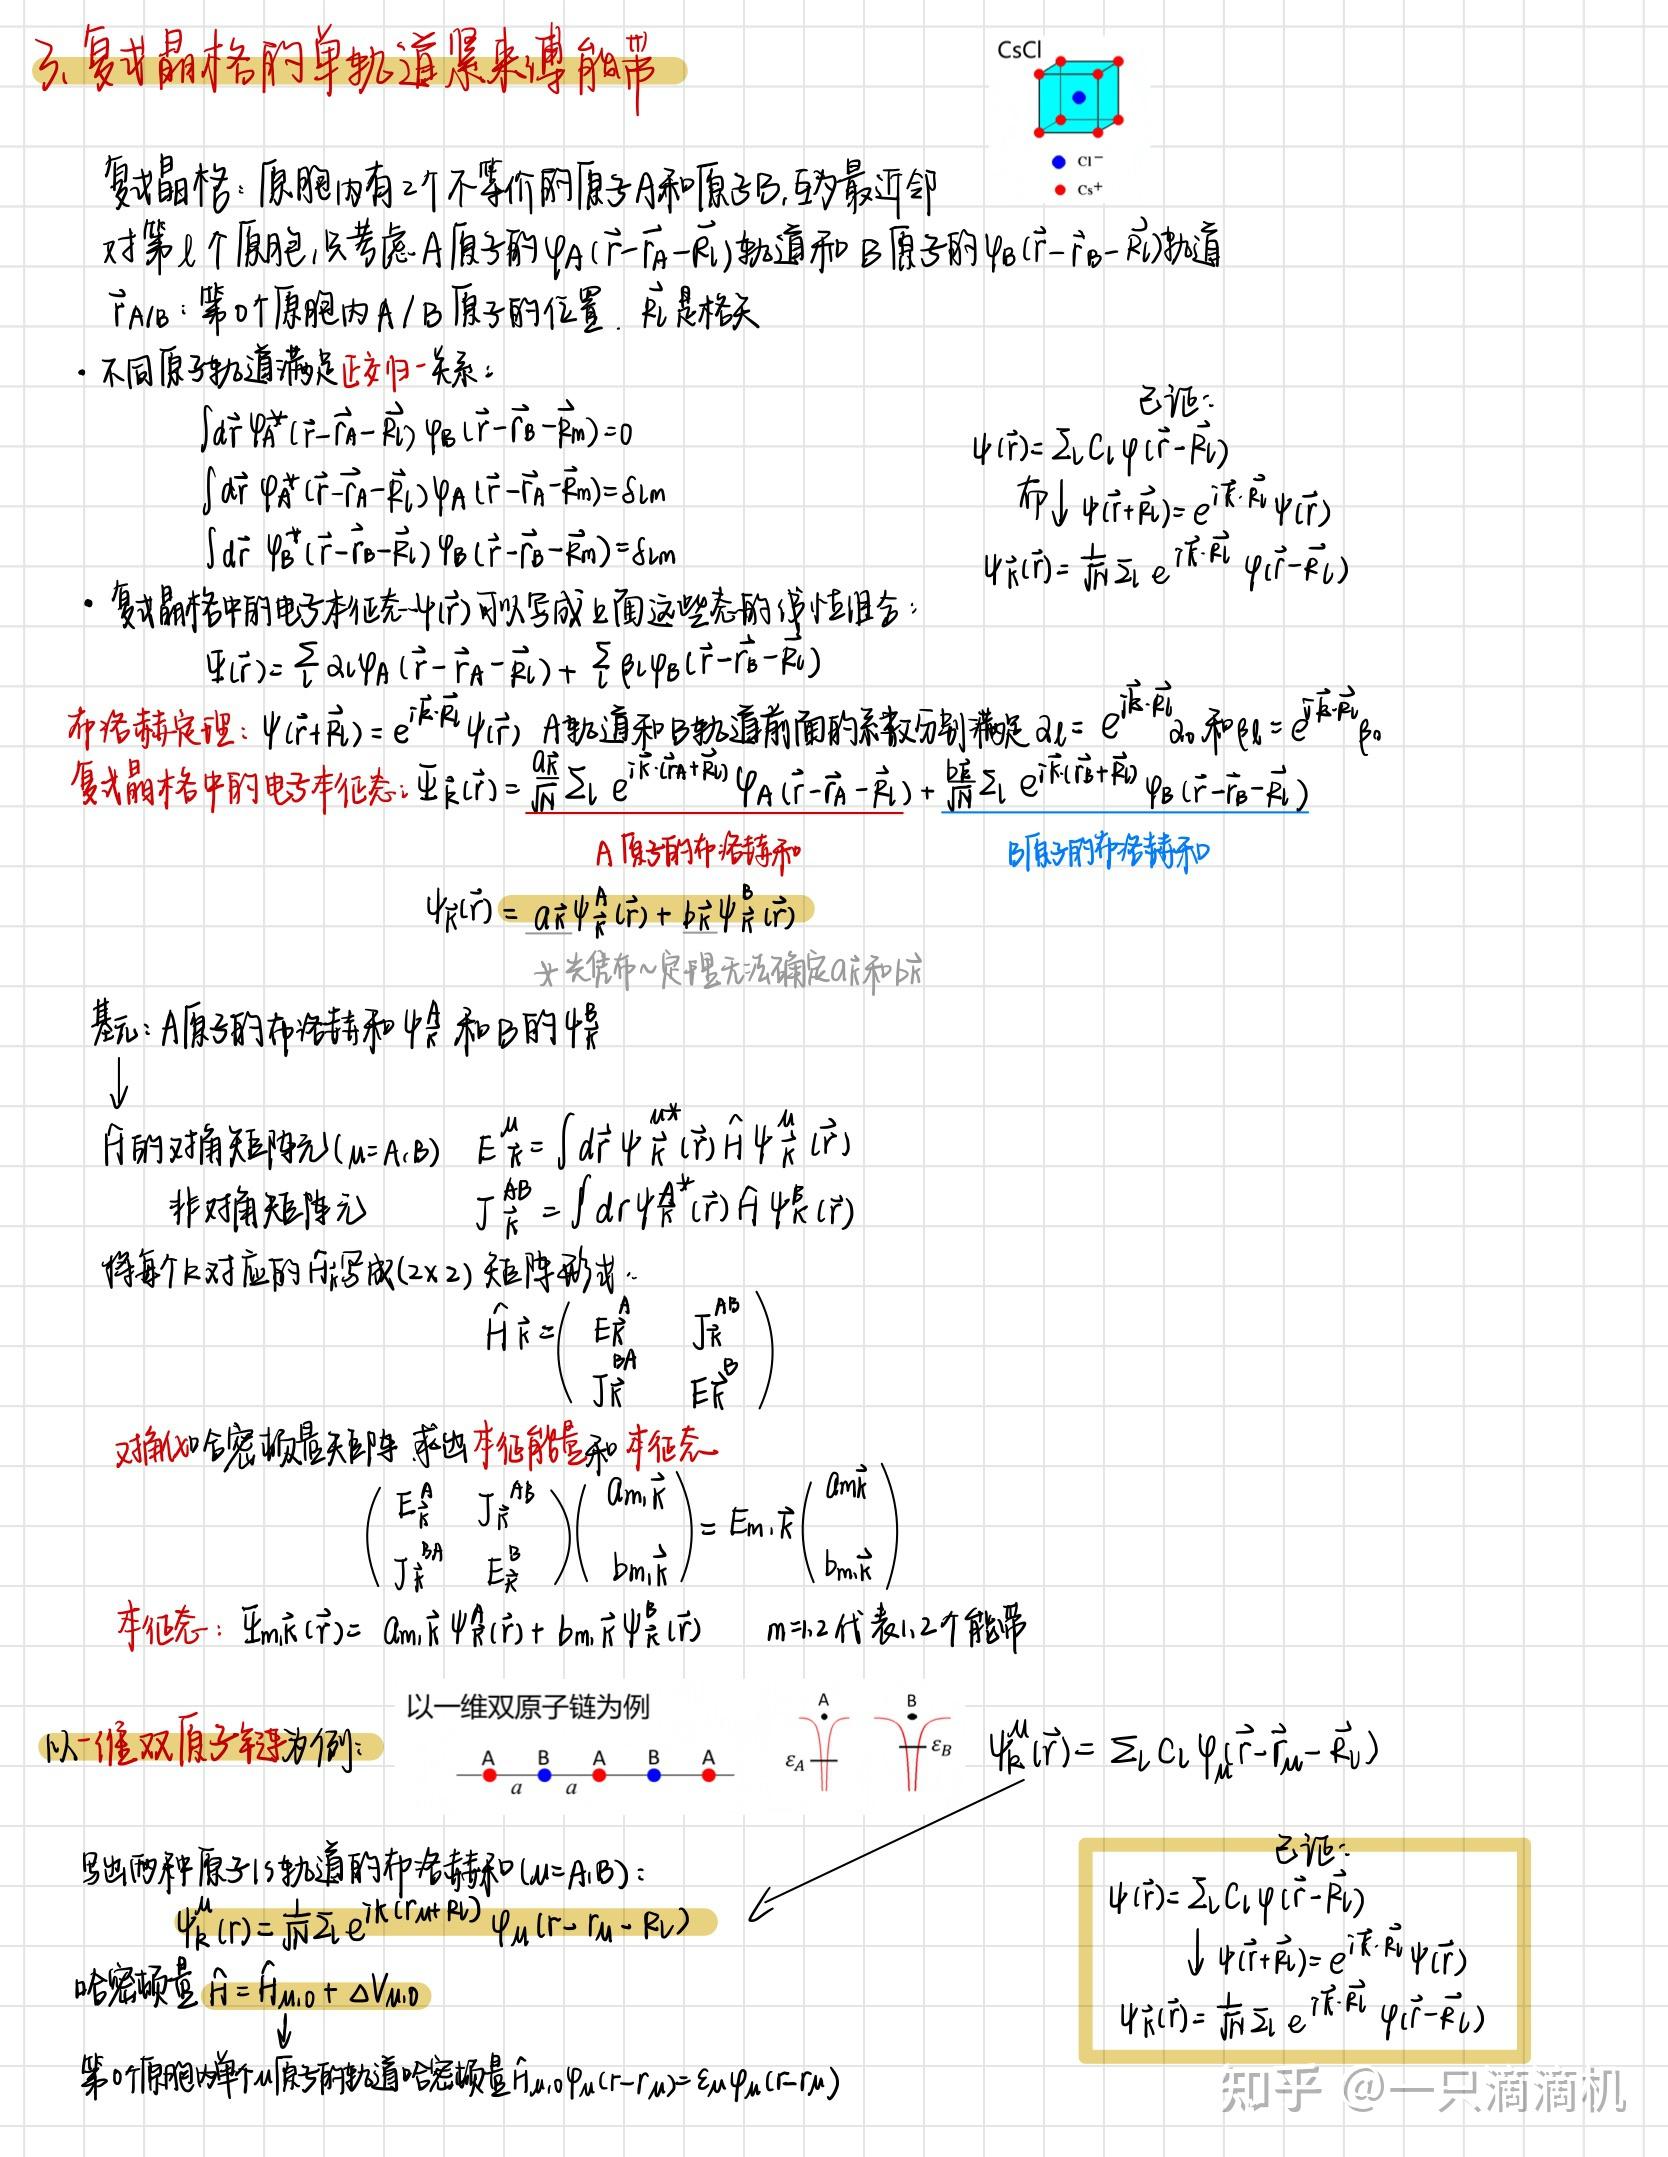 三、复式晶格的单轨道紧束缚能带
CsCl
Cl⁻
Cs⁺
复式晶格：原胞内有2个不等价的原子A和原子B，互为最近邻
对第l个原胞，只考虑A原子的φA(r⃗-r⃗A-R⃗l)轨道和B原子的φB(r⃗-r⃗B-R⃗l)轨道
r⃗A/B：第0个原胞内A/B原子的位置．R⃗l是格矢
·不同原子轨道满足正交归一关系：
∫dr⃗ φA*(r⃗-r⃗A-R⃗l) φB(r⃗-r⃗B-R⃗m)=0
∫dr⃗ φA*(r⃗-r⃗A-R⃗l) φA(r⃗-r⃗A-R⃗m)=δlm
∫dr⃗ φB*(r⃗-r⃗B-R⃗l) φB(r⃗-r⃗B-R⃗m)=δlm
已证：
ψ(r⃗)=Σl Cl φ(r⃗-R⃗l)
布↓ψ(r⃗+R⃗l)=e^{ik⃗·R⃗l} ψ(r⃗)
ψk⃗(r⃗)=1/√N Σl e^{ik⃗·R⃗l} φ(r⃗-R⃗l)
·复式晶格中的电子本征态ψ(r⃗)可以写成上面这些态的线性组合：
Ψ(r⃗)=Σl αlφA(r⃗-r⃗A-R⃗l)+Σl βlφB(r⃗-r⃗B-R⃗l)
布洛赫定理：ψ(r⃗+R⃗l)=e^{ik⃗·R⃗l} ψ(r⃗) A轨道和B轨道前面的系数分别满足αl=e^{ik⃗·R⃗l}α0和βl=e^{ik⃗·R⃗l}β0
复式晶格中的电子本征态：Ψk⃗(r⃗)=ak⃗/√N Σl e^{ik⃗·(r⃗A+R⃗l)} φA(r⃗-r⃗A-R⃗l)+bk⃗/√N Σl e^{ik⃗·(r⃗B+R⃗l)} φB(r⃗-r⃗B-R⃗l)
A原子的布洛赫和 B原子的布洛赫和
ψk⃗(r⃗)=ak⃗ψk⃗^A(r⃗)+bk⃗ψk⃗^B(r⃗)
*光凭布~定理无法确定ak⃗和bk⃗
基元：A原子的布洛赫和ψk⃗^A和B的ψk⃗^B
↓
Ĥ的对角矩阵元(μ=A,B) Ek⃗^μ=∫dr⃗ ψk⃗^μ*(r⃗) Ĥ ψk⃗^μ(r⃗)
非对角矩阵元 Jk⃗^AB=∫dr ψk⃗^A*(r⃗) Ĥ ψk⃗^B(r⃗)
将每个k对应的Ĥk写成(2×2)矩阵形式：
Ĥk⃗=( Ek⃗^A Jk⃗^AB
Jk⃗^BA Ek⃗^B )
对角化哈密顿量矩阵 求出本征能量和本征态
( Ek⃗^A Jk⃗^AB ) ( am,k⃗ ) = Em,k⃗ ( amk⃗ )
( Jk⃗^BA Ek⃗^B ) ( bm,k⃗ ) ( bm,k⃗ )
本征态：Ψm,k⃗(r⃗)=am,k⃗ψk⃗^A(r⃗)+bm,k⃗ψk⃗^B(r⃗) m=1,2代表1,2个能带
以一维双原子链为例
A B A B A
a a
A B
εA εB
以一维双原子链为例：
ψk^μ(r⃗)=Σl Cl φμ(r⃗-r⃗μ-R⃗l)
写出两种原子1s轨道的布洛赫和(μ=A,B)：
ψk^μ(r)=1/√N Σl e^{ik(rμ+Rl)} φμ(r-rμ-Rl)
哈密顿量Ĥ=Ĥμ,0+ΔVμ,0
↓
第0个原胞内单个μ原子的轨道哈密顿量Ĥμ,0φμ(r-rμ)=εμφμ(r-rμ)
已证：
ψ(r⃗)=Σl Cl φ(r⃗-R⃗l)
↓ψ(r⃗+R⃗l)=e^{ik⃗·R⃗l} ψ(r⃗)
ψk⃗(r⃗)=1/√N Σl e^{ik⃗·R⃗l} φ(r⃗-R⃗l)
知乎 @一只滴滴机